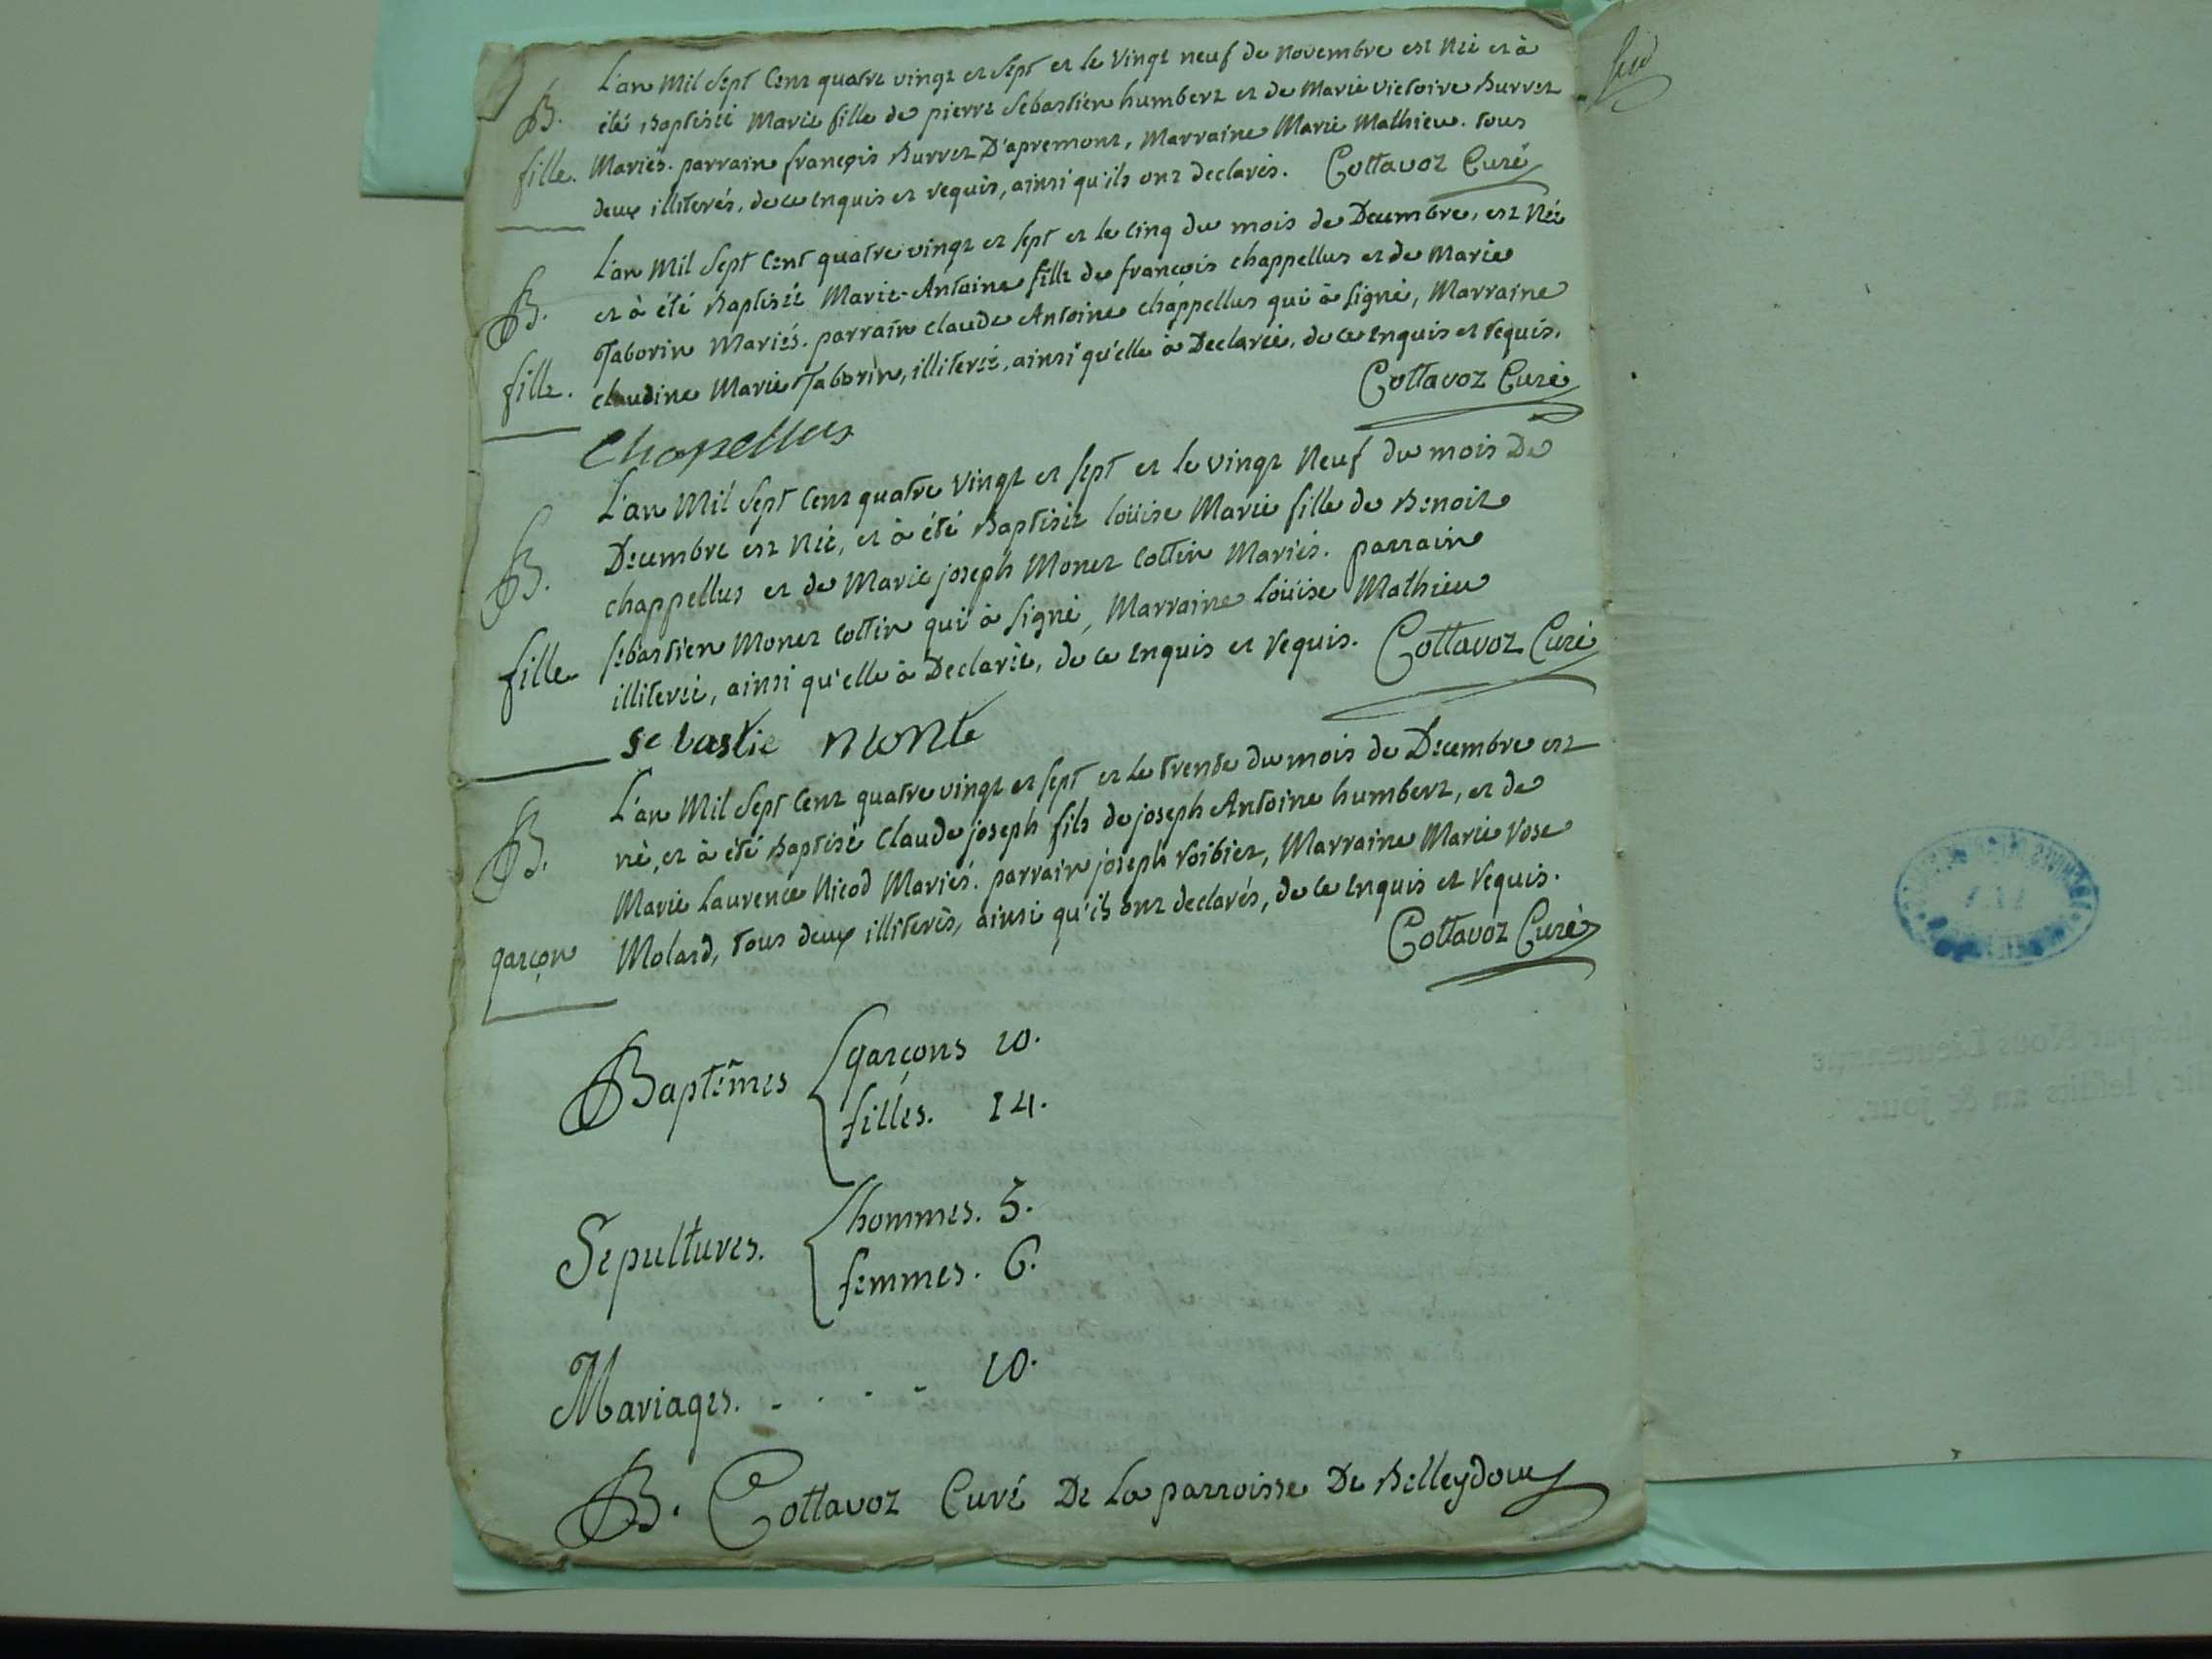 B.
fille.
L'an Mil Sept Cent quatre vingt et sept et le vingt neuf de Novembre est Née et à
été Baptisée Marie fille de pierre Sebastien humbert et de Marie victoire Burret
Mariés. parrain françois Burret D'apremont, Marraine Marie Mathieu. tous
deux illiterés, de ce enquis et requis, ainsi qu'ils ont declarés. Cottavoz Curé
B.
fille.
L'an Mil Sept Cent quatre vingt et sept et le cinq du mois de Decembre, est Née
et à été Baptisée Marie-Antoine fille de françois chappellus et de Marie
Taborin Mariés. parrain claude Antoine chappellus qui à signé, Marraine
claudine Marie Taborin, illiterée, ainsi qu'elle à Declarée, de ce enquis et requis.
Cottavoz Curé
Chapellus
B.
fille
L'an Mil Sept Cent quatre vingt et sept et le vingt Neuf du mois De
Decembre est Née, et à été Baptisée loüise Marie fille de Benoit
chappellus et de Marie joseph Monet Cottin Mariés. parrain
sebastien Monet Cottin qui à signé, Marraine loüise Mathieu
illiterée, ainsi qu'elle à Declarée, de ce enquis et requis. Cottavoz Curé
sebastie monte
B.
garçon
L'an Mil Sept Cent quatre vingt et sept et le trente du mois de Decembre est
né, et à été Baptisé Claude joseph fils de joseph Antoine humbert, et de
Marie Laurence Nicod Mariés. parrain joseph roibiet, Marraine Marie rose
Molard, tous deux illiterés, ainsi qu'ils ont declarés, de ce enquis et requis.
Cottavoz Curé
Baptêmes
garçons 10.
filles. 14.
Sepultures.
hommes. 5.
femmes. 6.
Mariages. - . - - 10.
B. Cottavoz Curé De La parroisse De Belleydoux